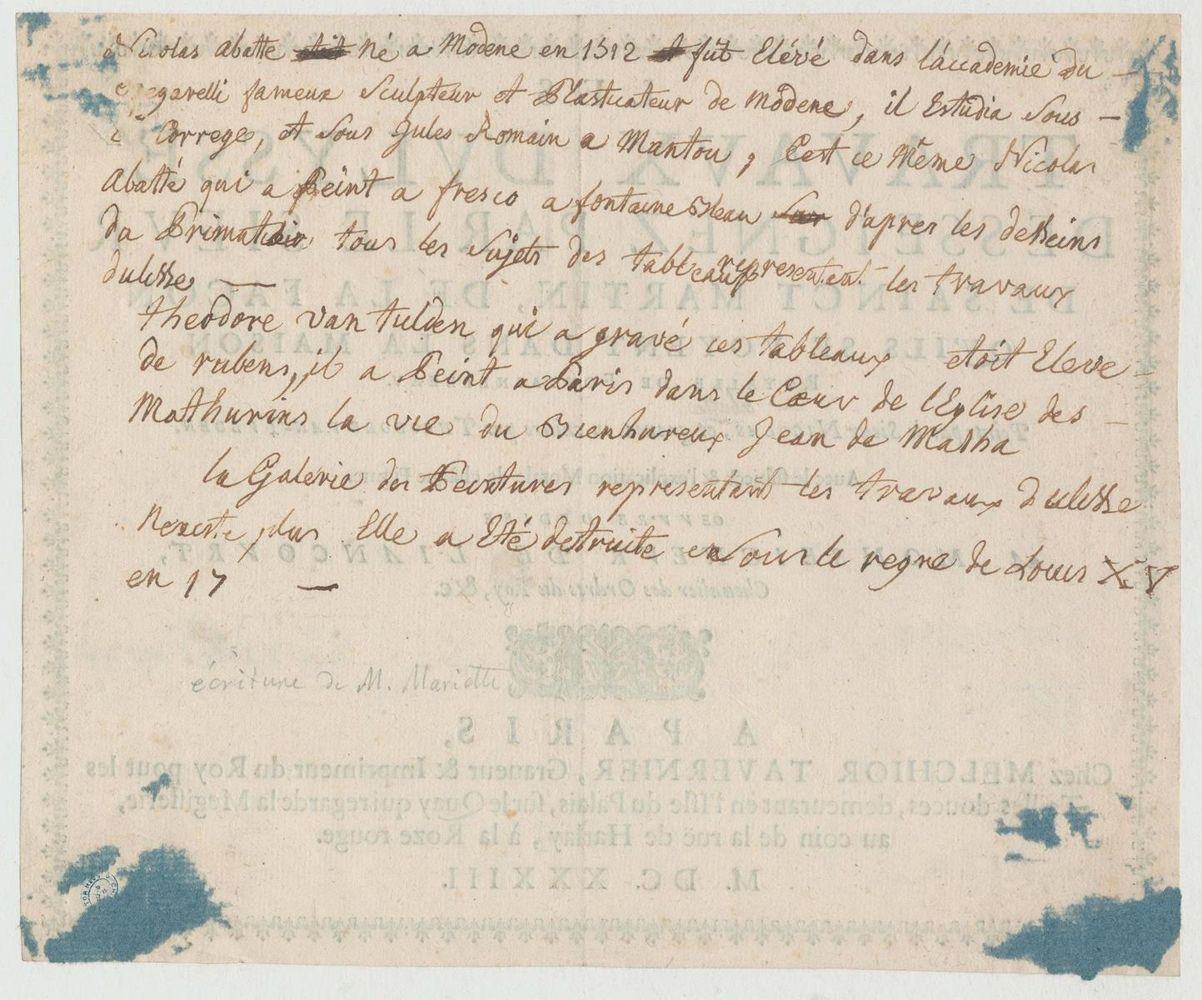 Nicolas abatte né a Modene en 1512 fût Elévé dans l'accademie du —
garelli fameux Sculpteur et Plasticateur de Modene, il Estudia Sous —
Correge, et Sous Jules Romain a Mantou, C'est ce Même Nicolas
Abatté qui a Peint a fresco a fontaineBleau d'apres les desseins
du Primatice tous les Sujets des tableaux representent les travaux
dulisse —
theodore van tulden qui a gravé ces tableaux etoit Eleve
de rubens, il a Peint a Paris dans le Cœur de l'Eglise des —
Mathurins la vie du Bienhureux Jean de Matha
la Galerie des Peintures representant les travaux dulisse
plus Elle a Eté detruite en Sous le regne de Louis XV
en 17 —
écriture de M. Mariette
TRAVAVX DVLYSSE
DESSEIGNEZ PAR LE SIEVR
DE SAINCT MARTIN, DE LA FAÇON
DANS LA MAISON
DE LIANCOVRT,
Cheualier des Ordres du Roy, &c.
A PARIS,
Chez MELCHIOR TAVERNIER, Graueur & Imprimeur du Roy pour les
Tailles douces, demeurant en l'Isle du Palais, sur le Quay qui regarde la Megisserie,
au coin de la ruë de Harlay, à la Roze rouge.
M. DC. XXXIII.